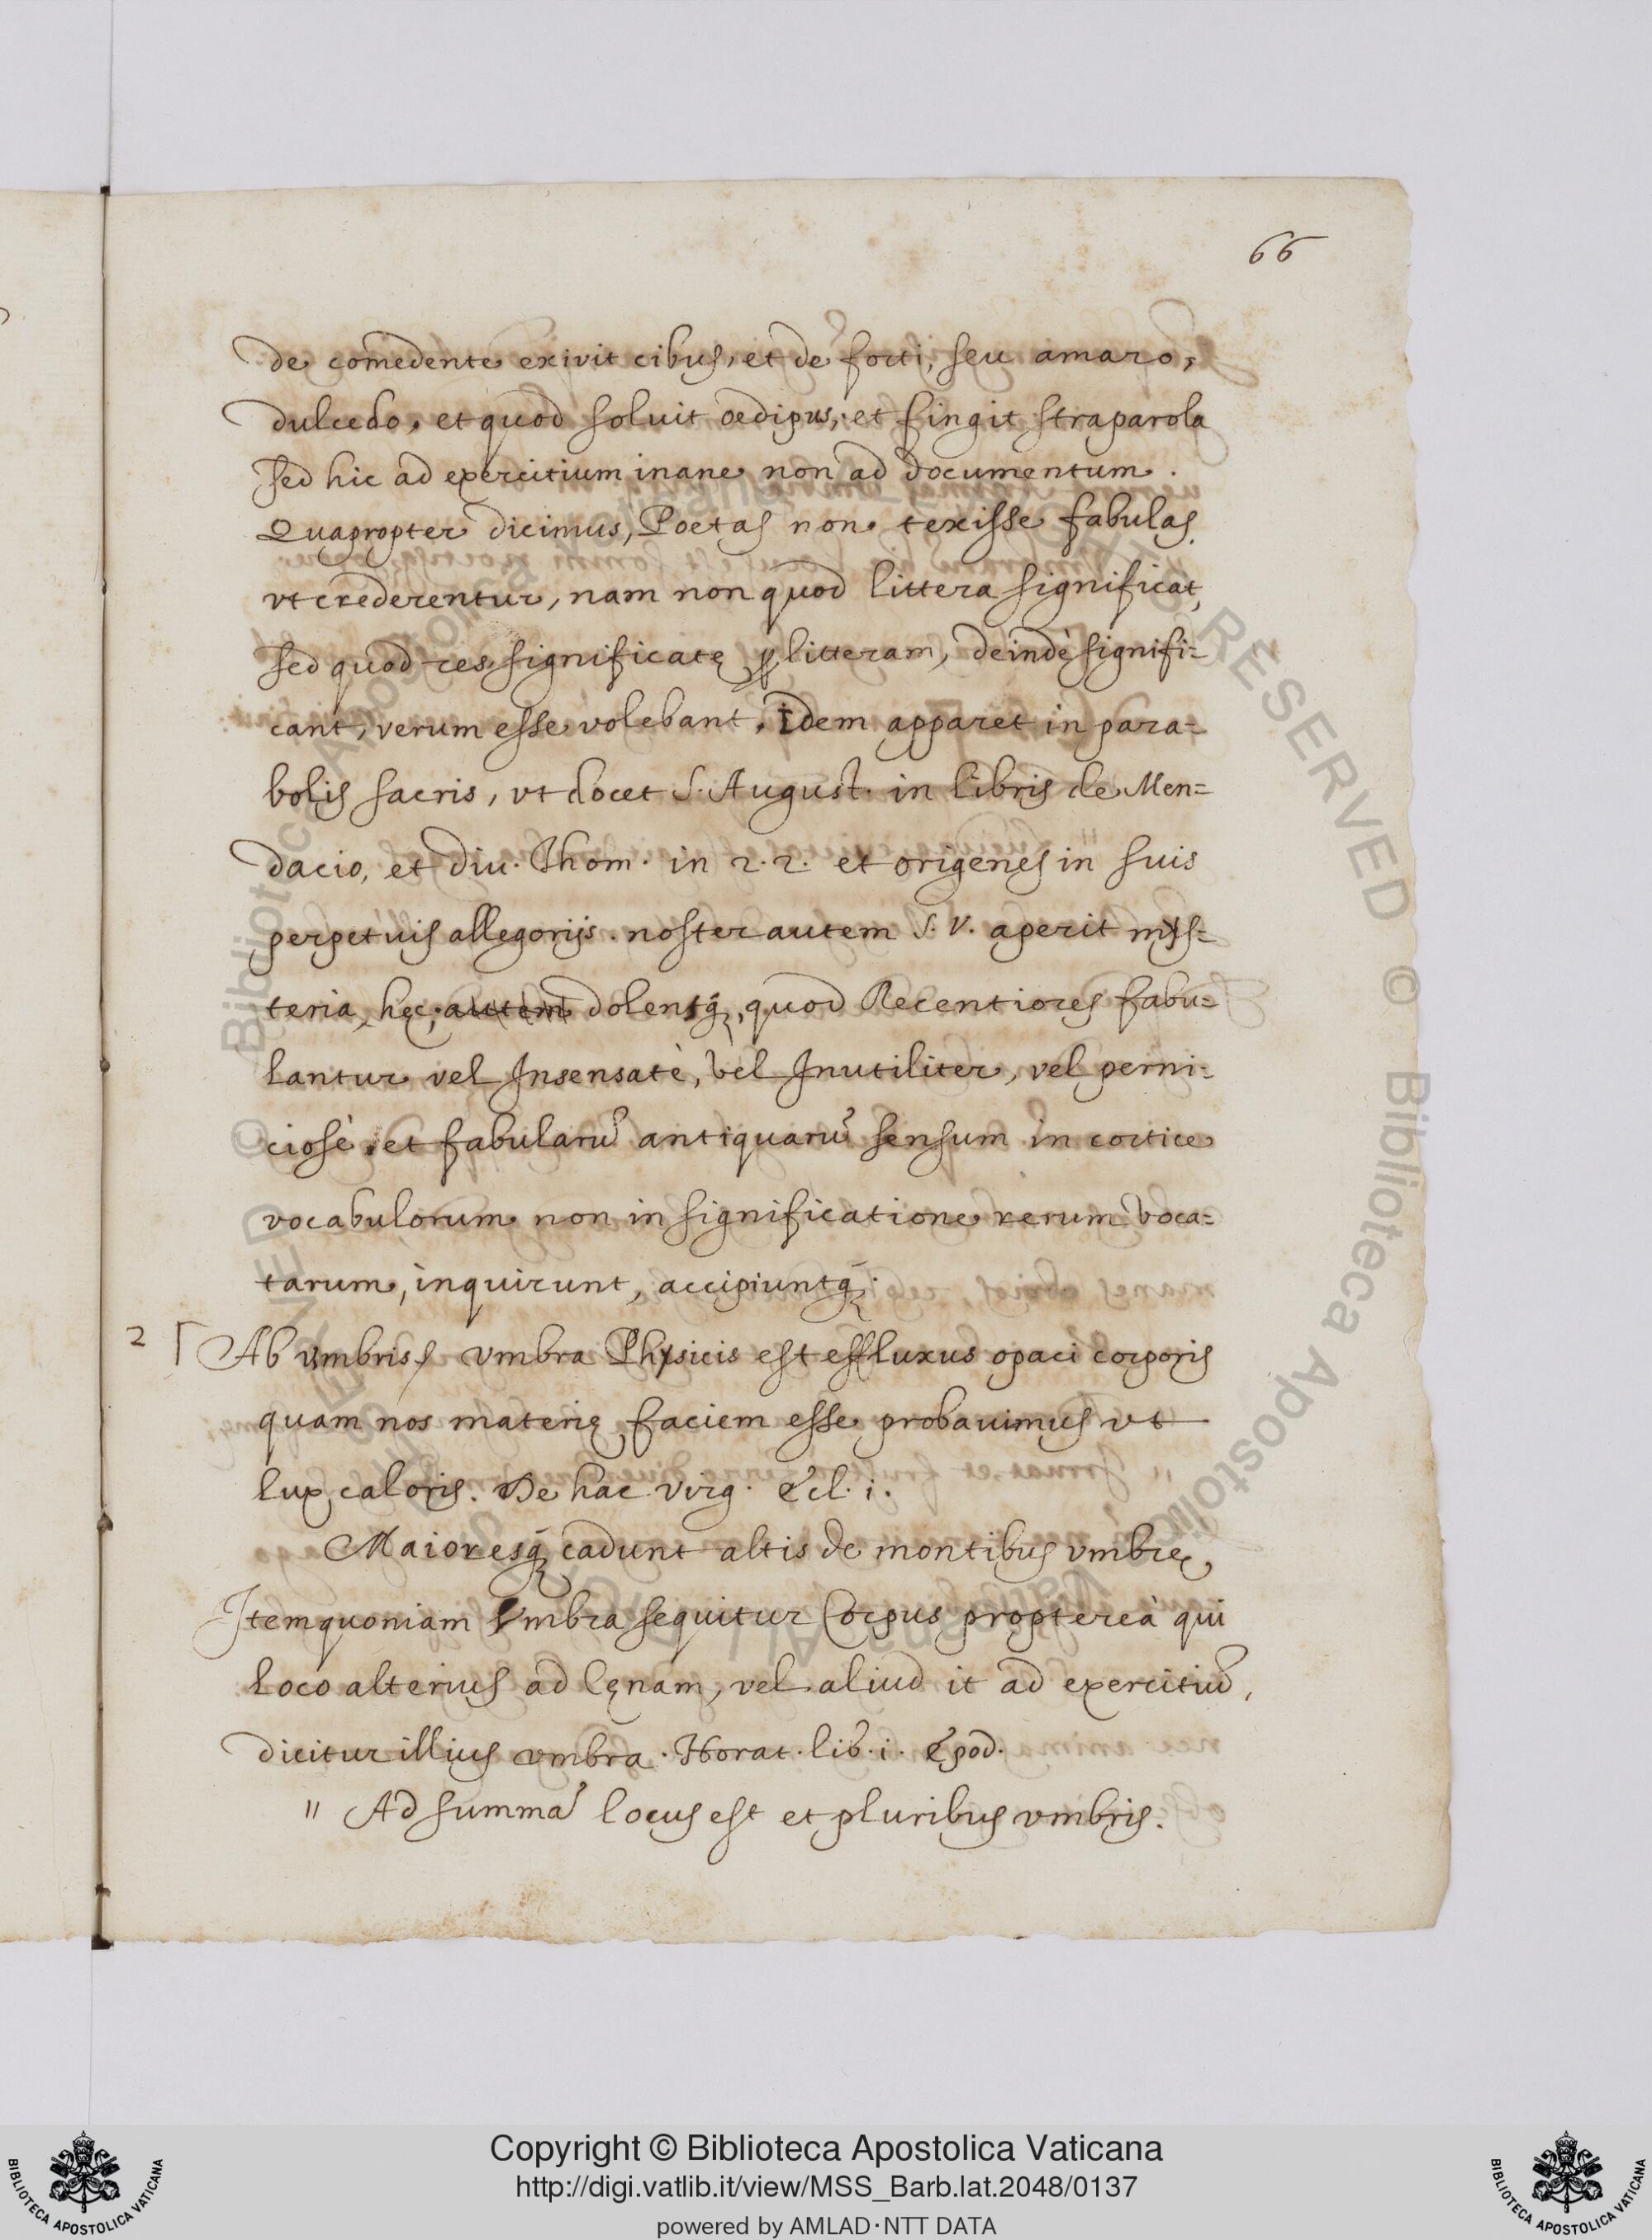 66
de comedente exivit cibus, et de forti, seu amaro,
dulcedo, et quod soluit oedipus, et fingit straparola
sed hic ad exercitium inane non ad documentum.
Quapropter dicimus, Poetas non texisse fabulas
vt crederentur, nam non quod littera significat,
sed quod res significatę ꝑ litteram, deindè signifi-
cant, verum esse volebant. Idem apparet in para-
bolis sacris, vt docet S. August. in libris de Men=
dacio, et diu. Thom. in 2.2. et origenes in suis
perpetuis allegorijs. noster autem S. V. aperit mys=
teria hęc, autem dolensq́, quod Recentiores fabu-
lantur vel Insensatè, vel Inutiliter, vel perni-
ciosè, et fabularũ antiquarũ sensum in cortice
vocabulorum non in significatione rerum voca-
tarum, inquirunt, accipiuntq́.
2 Ab vmbris vmbra Physicis est effluxus opaci corporis
quam nos materię faciem esse probauimus vt
lux caloris. De hac Virg. Ecl. i.
Maioresq́ cadunt altis de montibus vmbrę,
Item quoniam Vmbra sequitur Corpus proptereà qui
loco alterius ad Cęnam, vel aliud it ad exercitiũ,
dicitur illius vmbra. Horat. lib. i. Epod.
" Ad summã locus est et pluribus vmbris.
Copyright © Biblioteca Apostolica Vaticana
http://digi.vatlib.it/view/MSS_Barb.lat.2048/0137
powered by AMLAD·NTT DATA
BIBLIOTECA APOSTOLICA VATICANA
BIBLIOTECA APOSTOLICA VATICANA